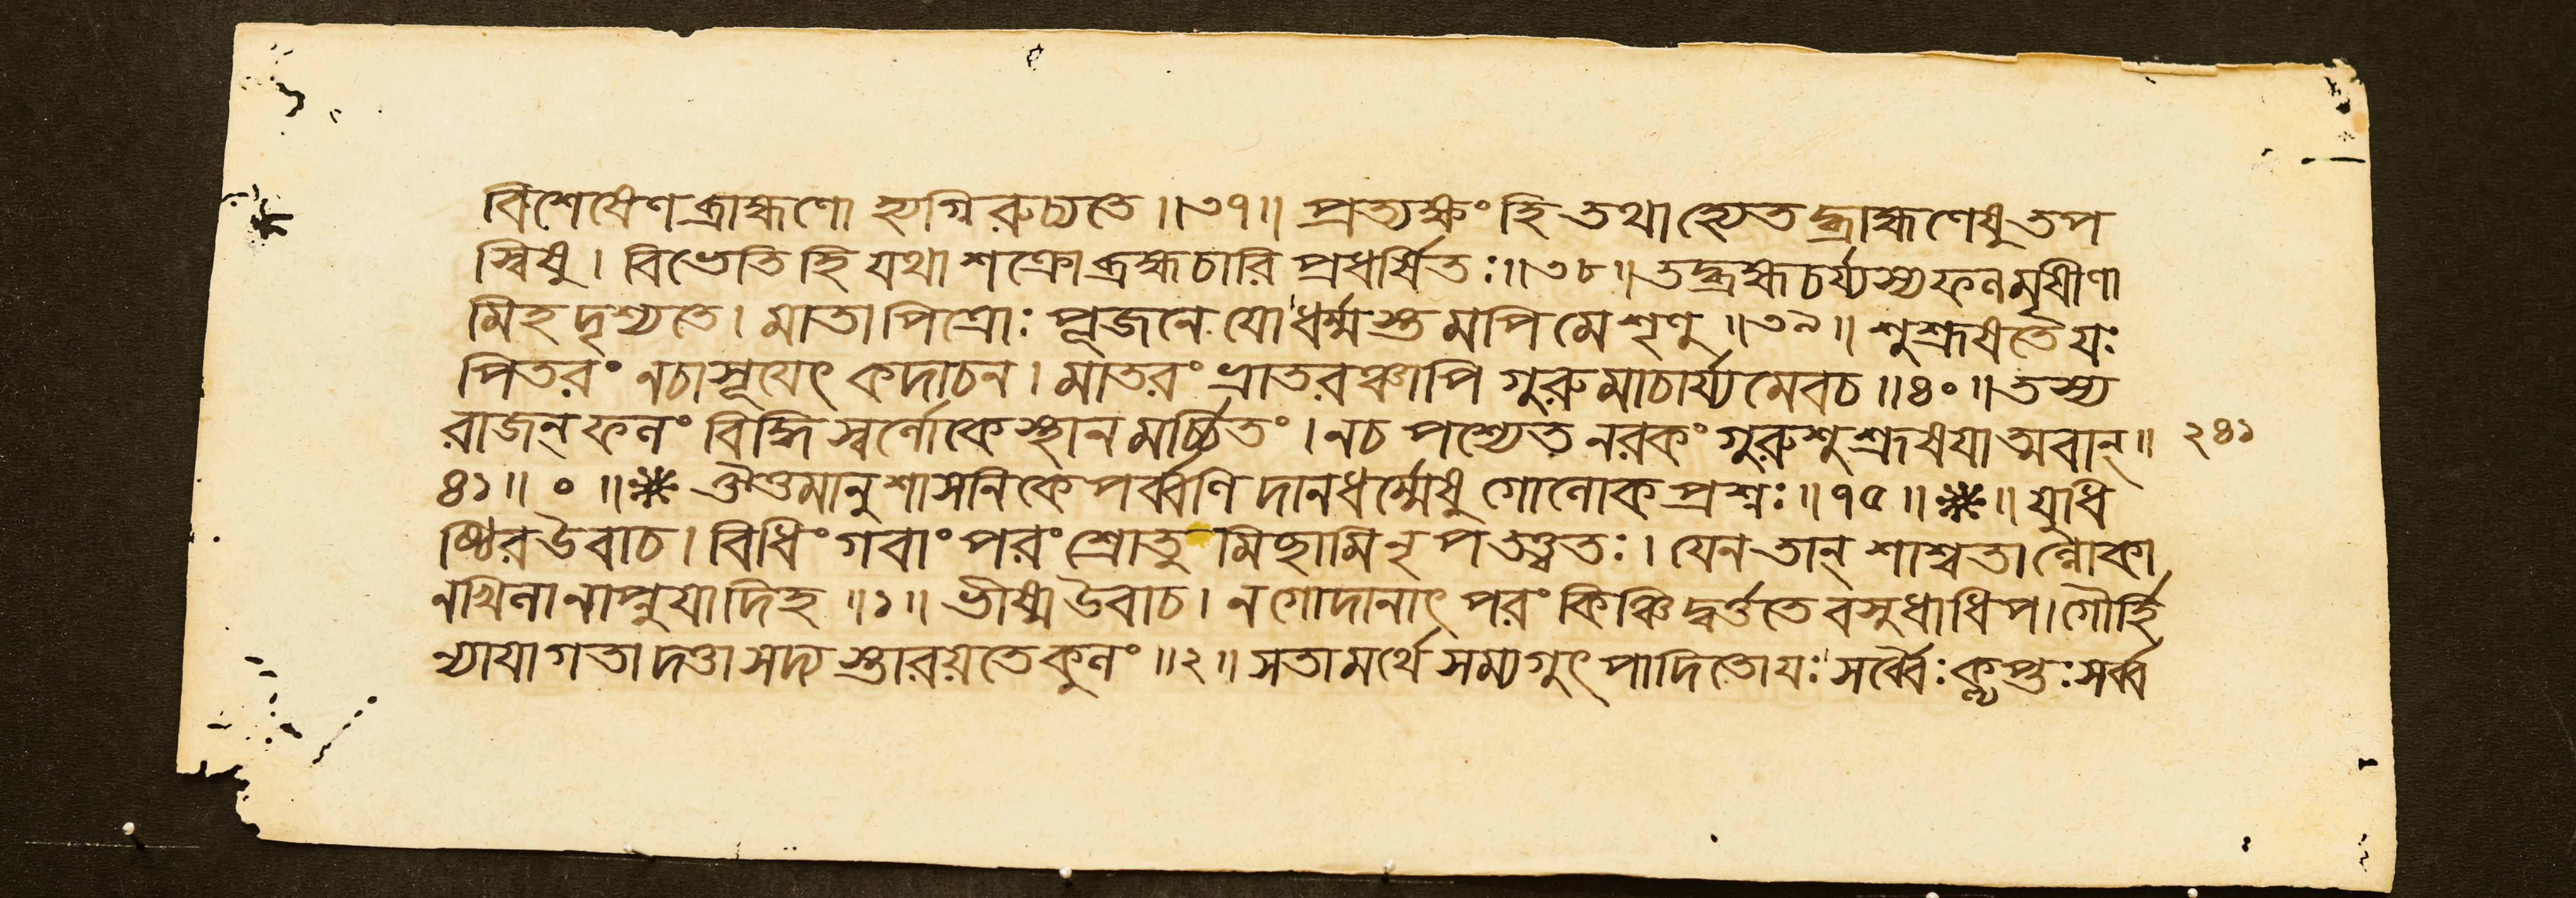 বিশেষেণ ব্রাহ্মণো হ্যগ্নিরুচ্যতে॥৩৭॥ প্রত্যক্ষং হি তথাহ্যেতদ্ব্রাহ্মণেষু তপ
স্বিষু। বিভেতি হি যথা শক্রো ব্রহ্মচারি প্রধর্ষিতঃ॥৩৮॥ তদ্ব্রহ্মচর্য্যস্য ফলমৃষীণা
মিহ দৃশ্যতে। মাতাপিত্রোঃ পূজনে যো ধর্ম্মস্তমপি মে শৃণু॥৩৯॥ শুশ্রূষতে যঃ
পিতরং নচাসূযেৎ কদাচন। মাতরং ভ্রাতরঞ্চাপি গুরুমাচার্য্যমেবচ॥৪০॥ তস্য
রাজন্ ফলং বিদ্ধি স্বর্লোকে স্থানমর্চ্চিতং। নচ পশ্যেত নরকং গুরুশুশ্রূষযাত্মবান্॥ ২৪১
৪১॥ ০ ॥ ঔত্তমানুশাসনিকে পর্ব্বণি দানধর্ম্মেষু গোলোকপ্রশ্নঃ॥৭৫॥ ॥ যুধি
ষ্ঠির উবাচ। বিধিং গবাং পরং শ্রোতুমিচ্ছামি নৃপ তত্ত্বতঃ। যেন তান্ শাশ্বতাল্লোকা
নখিলানাপ্নুযাদিহ॥১॥ ভীষ্ম উবাচ। ন গোদানাৎ পরং কিঞ্চিদ্বর্ত্ততে বসুধাধিপ। গৌর্হি
ন্যাযাগতা দত্তা সদ্যস্তারয়তে কুলং॥২॥ সতামর্থে সম্যগুৎপাদিতো যঃ সর্ব্বৈঃ কৢপ্তঃ সর্ব্ব